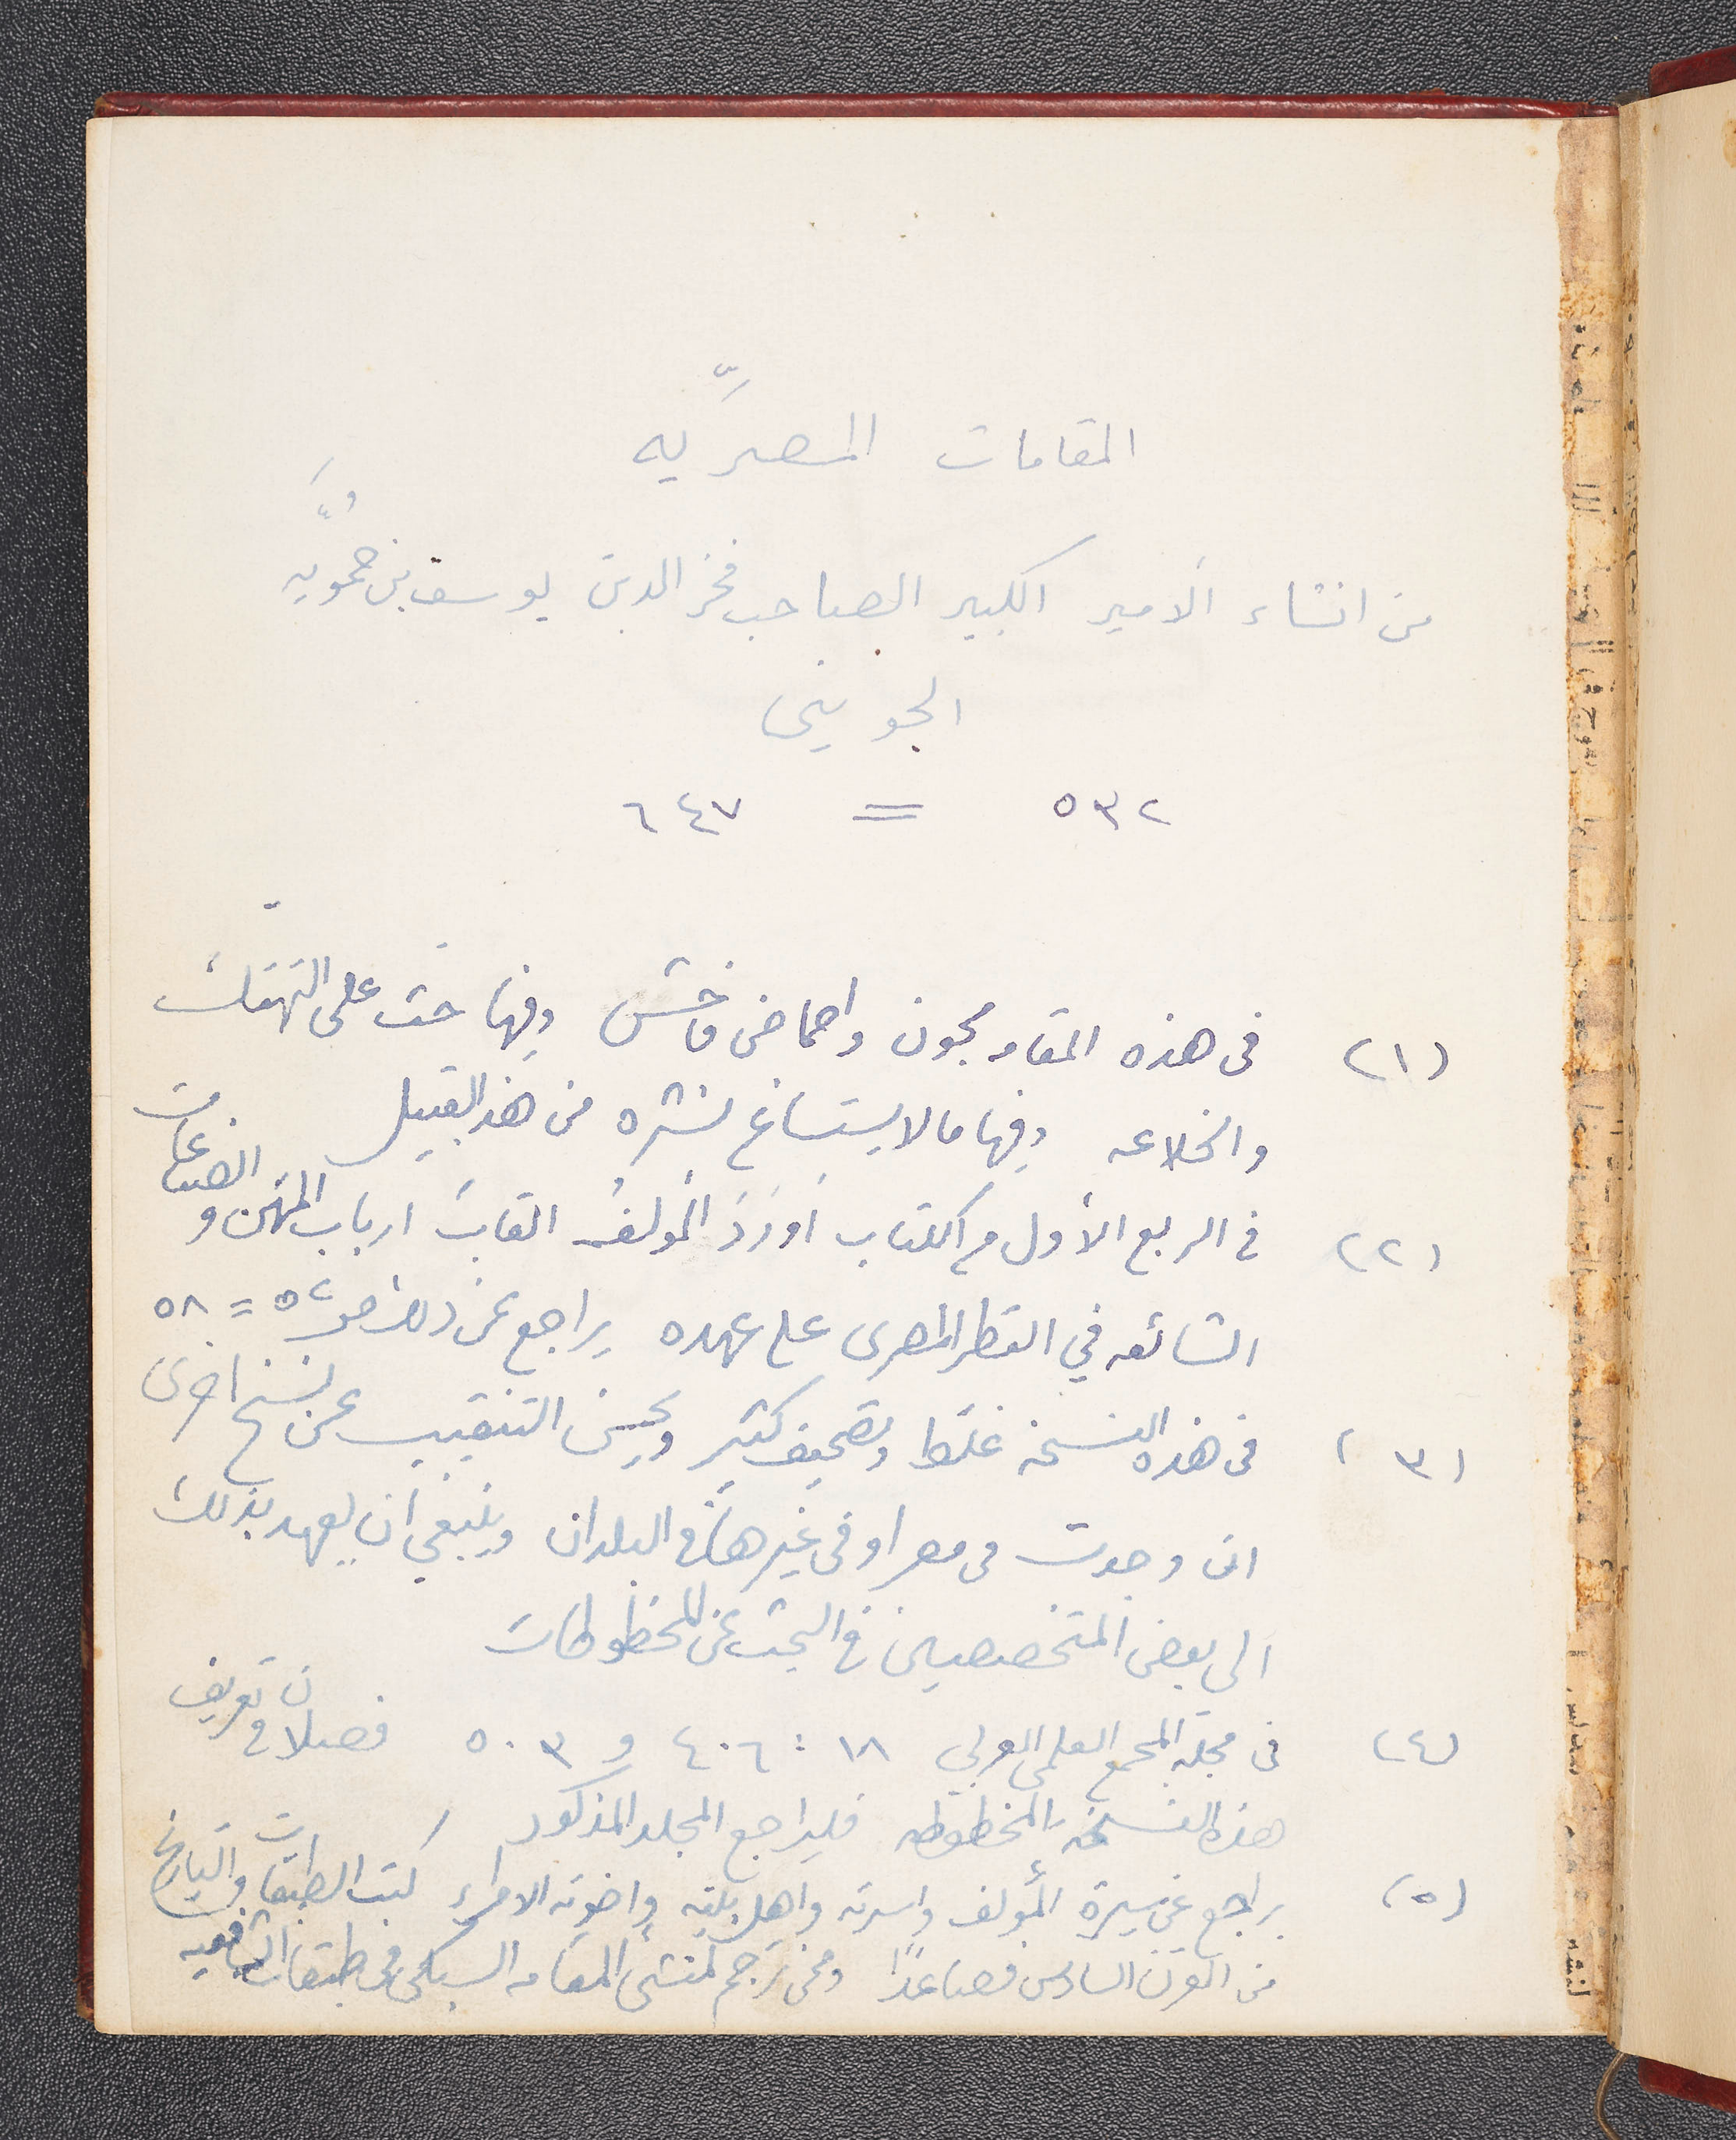 المقامات المصريّه
من انشاء الامير الكبير الصاحب فخر الدين يوسف بن حمُّويَه
الجويني
٥٣٢ = ٦٤٧
(١) في هذه المقامه مجون واحماض فاحش وفيها حث على التهتك
والخلاعه وفيها مالا يستساغ نشره من هذا القبيل
(٢) في الربع الأول من الكتاب أورَدَ المؤلفُ القابَ ارباب المهن و الصناعات
الشائعه في القطر المصرى على عهده يراجع عن ذلك ص ٥٢ = ٥٨
(٣) في هذه النسخه غلط وتصحيف كثير ويحسن التنقيب عن نسخ اخرى
ان وجدت في مصر او في غيرها من البلدان وينبغي ان يعهد بذلك
الى بعض المتخصصين في البحث عن المخطوطات
(٤) في مجلة المجمع العلمي العربي ١٨ : ٤٠٦ و ٥٠٣ فصلان في تعريف
هذه النسخه المخطوطه فليراجع المجلد المذكور
(٥) يراجع عن سيرة المؤلف واسرته واهل بيته وإخوته الامراء كتب الطبقات والتاريخ
من القرن السادس فصاعداً وممن ترجم لمنشئ المقامه السبكي في طبقات الشافعيه